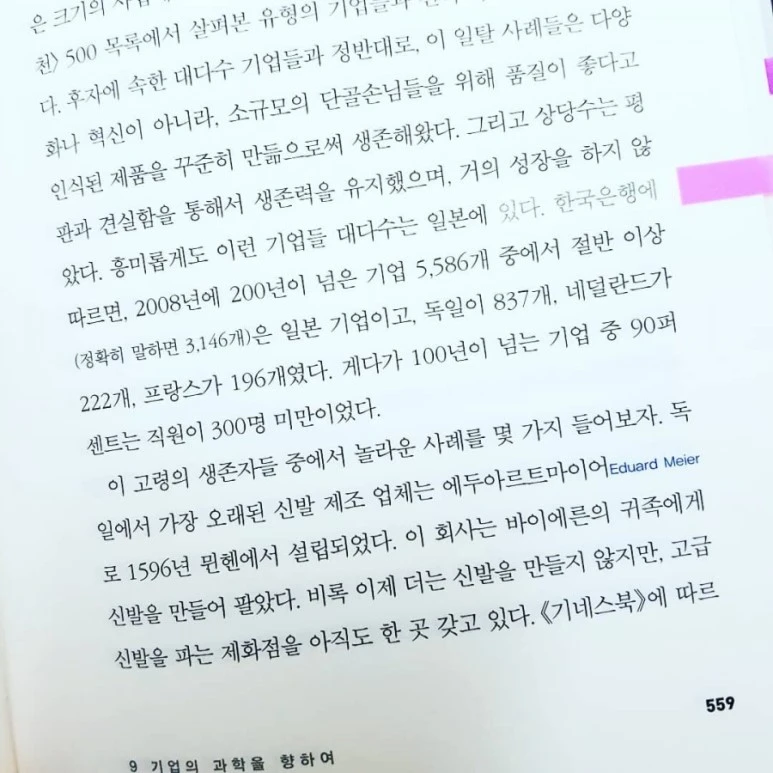 은 크기의
천〉 500 목록에서 살펴본 유형의 기업들과
다. 후자에 속한 대다수 기업들과 정반대로, 이 일탈 사례들은 다양
화나 혁신이 아니라, 소규모의 단골손님들을 위해 품질이 좋다고
인식된 제품을 꾸준히 만듦으로써 생존해왔다. 그리고 상당수는 평
판과 견실함을 통해서 생존력을 유지했으며, 거의 성장을 하지 않
았다. 흥미롭게도 이런 기업들 대다수는 일본에 있다. 한국은행에
따르면, 2008년에 200년이 넘은 기업 5,586개 중에서 절반 이상
(정확히 말하면 3,146개)은 일본 기업이고, 독일이 837개, 네덜란드가
222개, 프랑스가 196개였다. 게다가 100년이 넘는 기업 중 90퍼
센트는 직원이 300명 미만이었다.
이 고령의 생존자들 중에서 놀라운 사례를 몇 가지 들어보자. 독
일에서 가장 오래된 신발 제조 업체는 에두아르트마이어Eduard Meier
로 1596년 뮌헨에서 설립되었다. 이 회사는 바이에른의 귀족에게
신발을 만들어 팔았다. 비록 이제 더는 신발을 만들지 않지만, 고급
신발을 파는 제화점을 아직도 한 곳 갖고 있다. 《기네스북》에 따르
559
9 기업의 과학을 향하여